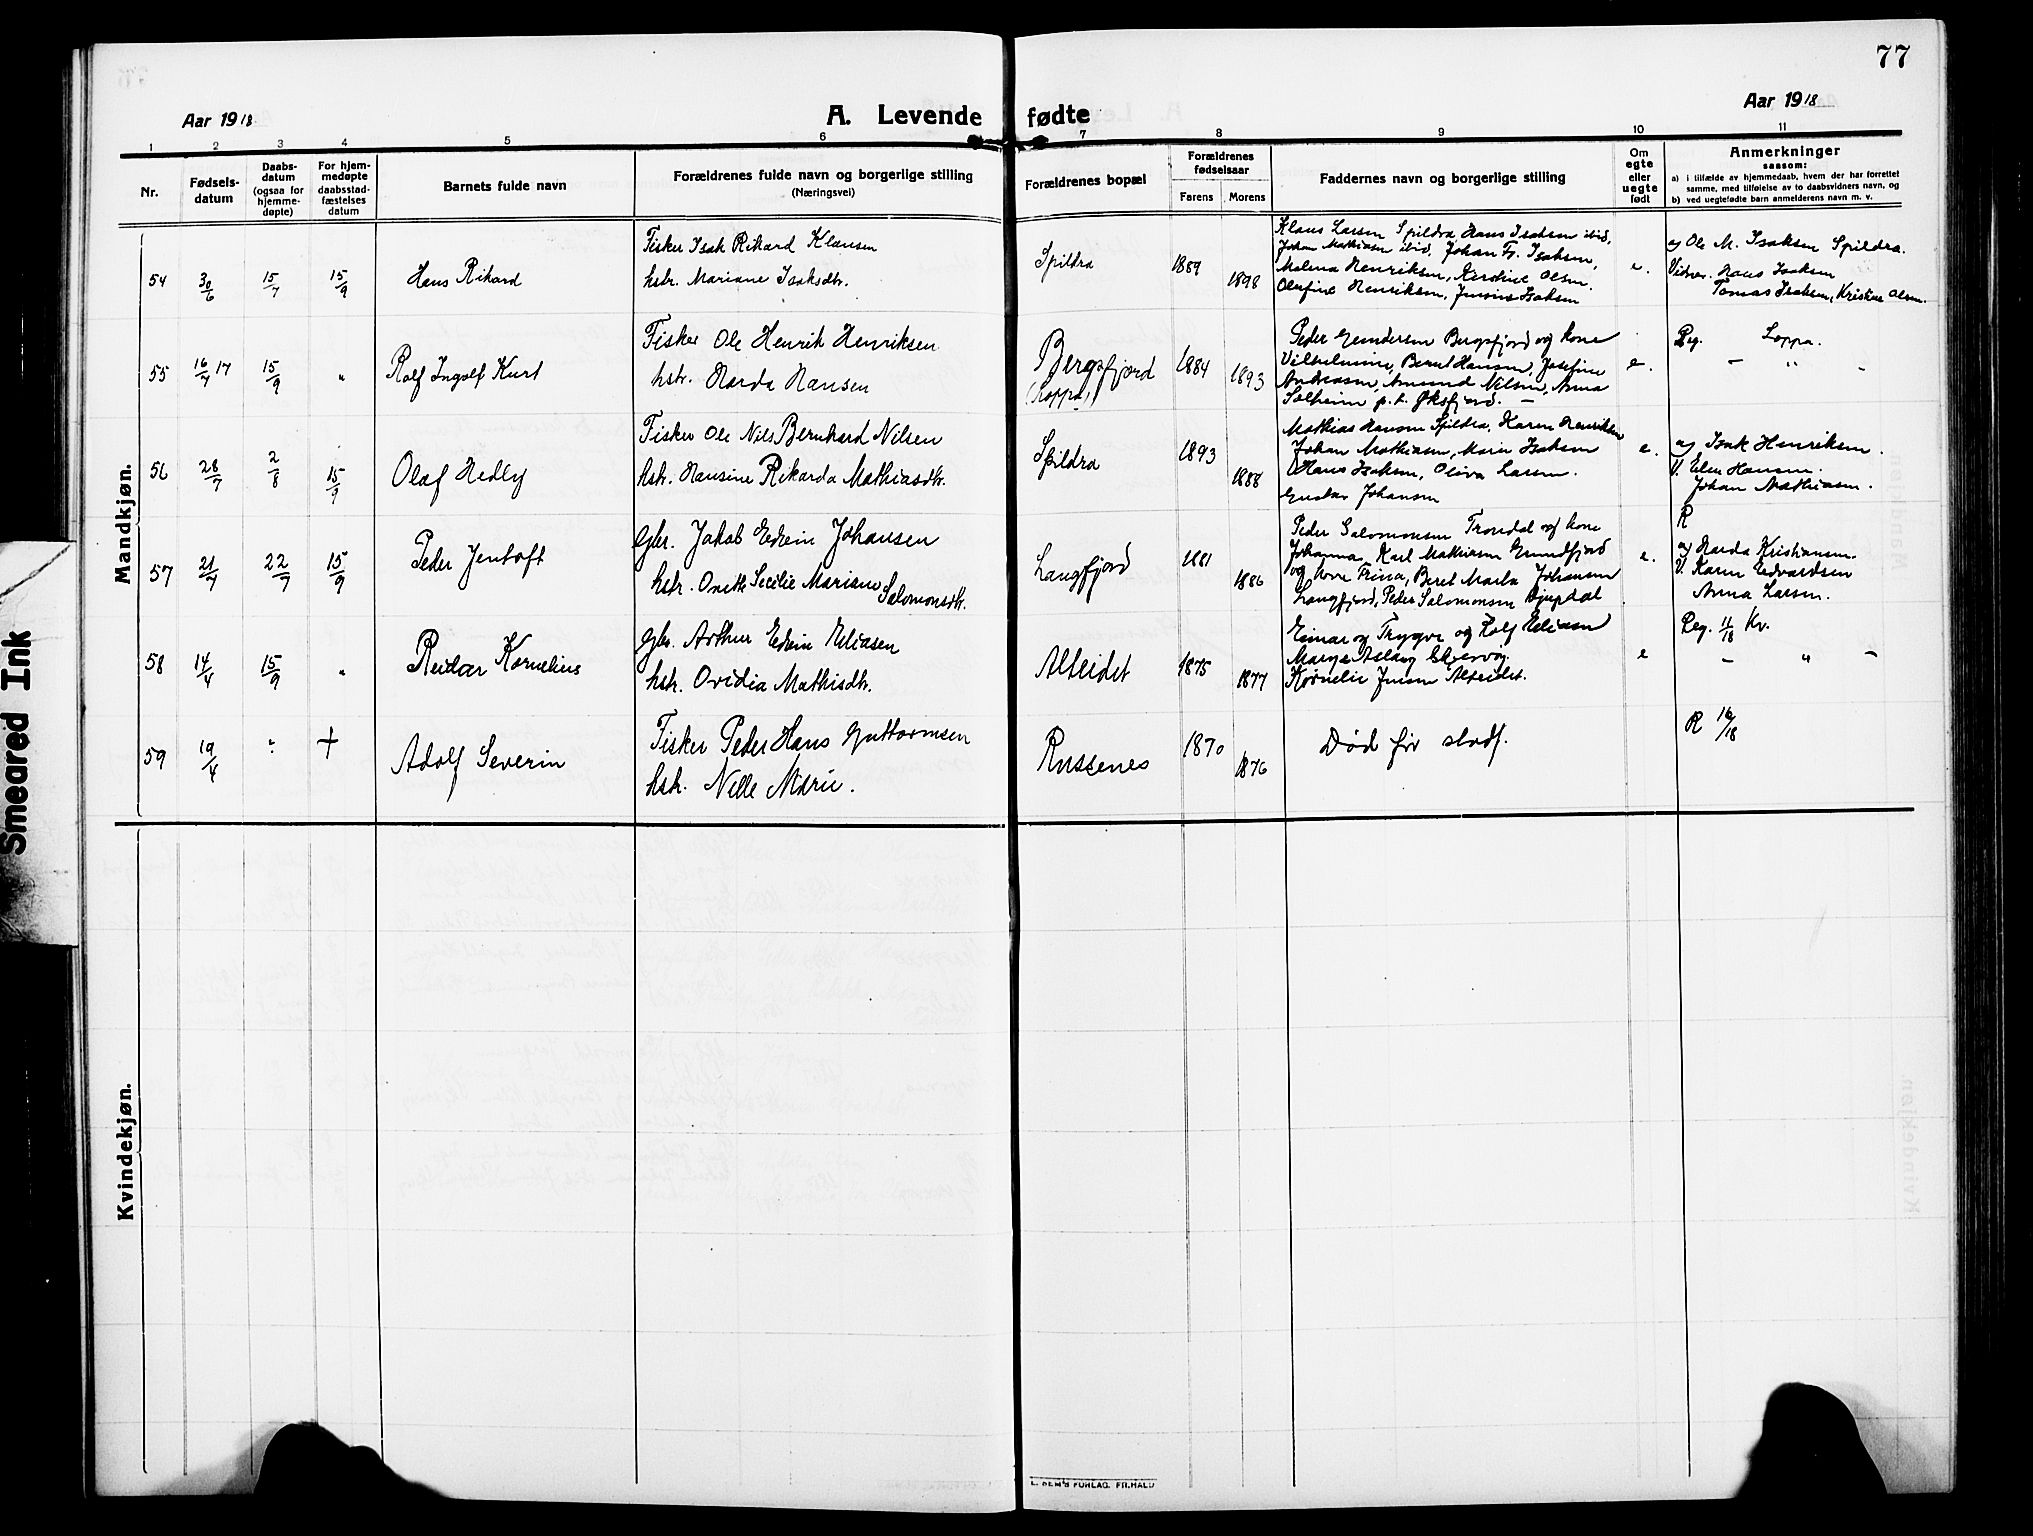 77
Aar 1918
A. Levende fødte
Aar 1918
1 2 3 4 5 6 7 8 9 10 11
Nr.
Fødsels-
datum
Daabs-
datum
(ogsaa for
hjemme-
døpte)
For hjem-
medøpte
daabsstad-
fæstelses
datum
Barnets fulde navn
Forældrenes fulde navn og borgerlige stilling
(Næringsvei)
Forældrenes bopæl
Forældrenes
fødselsaar
Farens Morens
Faddernes navn og borgerlige stilling
Om
egte
eller
uegte
født
Anmerkninger
saasom:
a) i tilfælde av hjemmedaab, hvem der har forrettet
samme, med tilføielse av to daabsvidners navn, og
b) ved uegtefødte barn anmelderens navn m. v.
Mandkjøn.
54 30/6 15/7 15/9 Hans Rikard
Fisker Isak Rikard Klausen
hstr. Mariane Isaksdtr.
Spildra 1889 1898
Klaus Larsen Spildra Hans Isaksen ibid,
Johan Mathiasen ibid, Johan Fr. Isaksen,
Malena Henriksen, Kerstine Olsen.
Olufine Henriksen, Jensine Isaksen
e.
a) Ole M. Isaksen Spildra.
Vidner. Hans Isaksen
Tomas Isaksen, Kristine Olsen.
55 16/7 17 15/9 " Rolf Ingolf Kurt
Fisker Ole Henrik Henriksen
hstr. Harda Hansen
Bergsfjord
(Loppa)
1884 1893
Peder Bergsfjord og kone
Vilhelmine, Bernt Hansen, Josefine
Andreasen, Amund Nilsen, Anna
Solheim p.t. Øksfjord. —
e.
Reg. Loppa.
— " -
56 28/7 2/8 15/9 Olaf Hedly
Fisker Ole Nils Bernhard Nilsen
hstr. Hansine Rikarda Mathiasdtr.
Spildra 1893 1888
Mathias Hansen Spildra, Karen Henriksen
Johan Mathiasen, Marie Isaksen
Hans Isaksen, Oliva Larsen.
Gustav Johansen
e.
a) Isak Henriksen.
V. Elen Hansen.
Johan Mathiasen.
57 21/7 22/7 15/9 Peder Jentoft
Gbr. Jakob Edvin Johansen
hstr. Onette Secilie Mariane Salomonsdtr.
Langfjord 1881 1886
Peder Salomonsen Trondal og kone
Johanna, Karl Mathiasen
og kone Trina, Beret Marta Johansen
Langfjord, Peder Salomonsen Djupdal
e.
R
a) Harda Kristiansen.
V. Karen Edvardsen
Anna Larsen.
58 14/4 15/9 " Reidar Kornelius
Gbr. Arthur Edvin Eliasen
hstr. Ovidia Mathisdtr.
Alteidet 1875 1877
Einar og Trygve og Rolf Eliasen
Marya Aslaug Skjervøy.
Kornelie Jensen Alteidet.
e
Reg. 11/18 Kv.
— " -
59 19/4 " + Adolf Severin
Fisker Peder Hans Guttormsen
hstr. Nelle Marie.
Russenes 1870 1876
Død før stadf.
R 16/18
Kvindekjøn.
Smeared Ink
FORLAG. FR.HALD